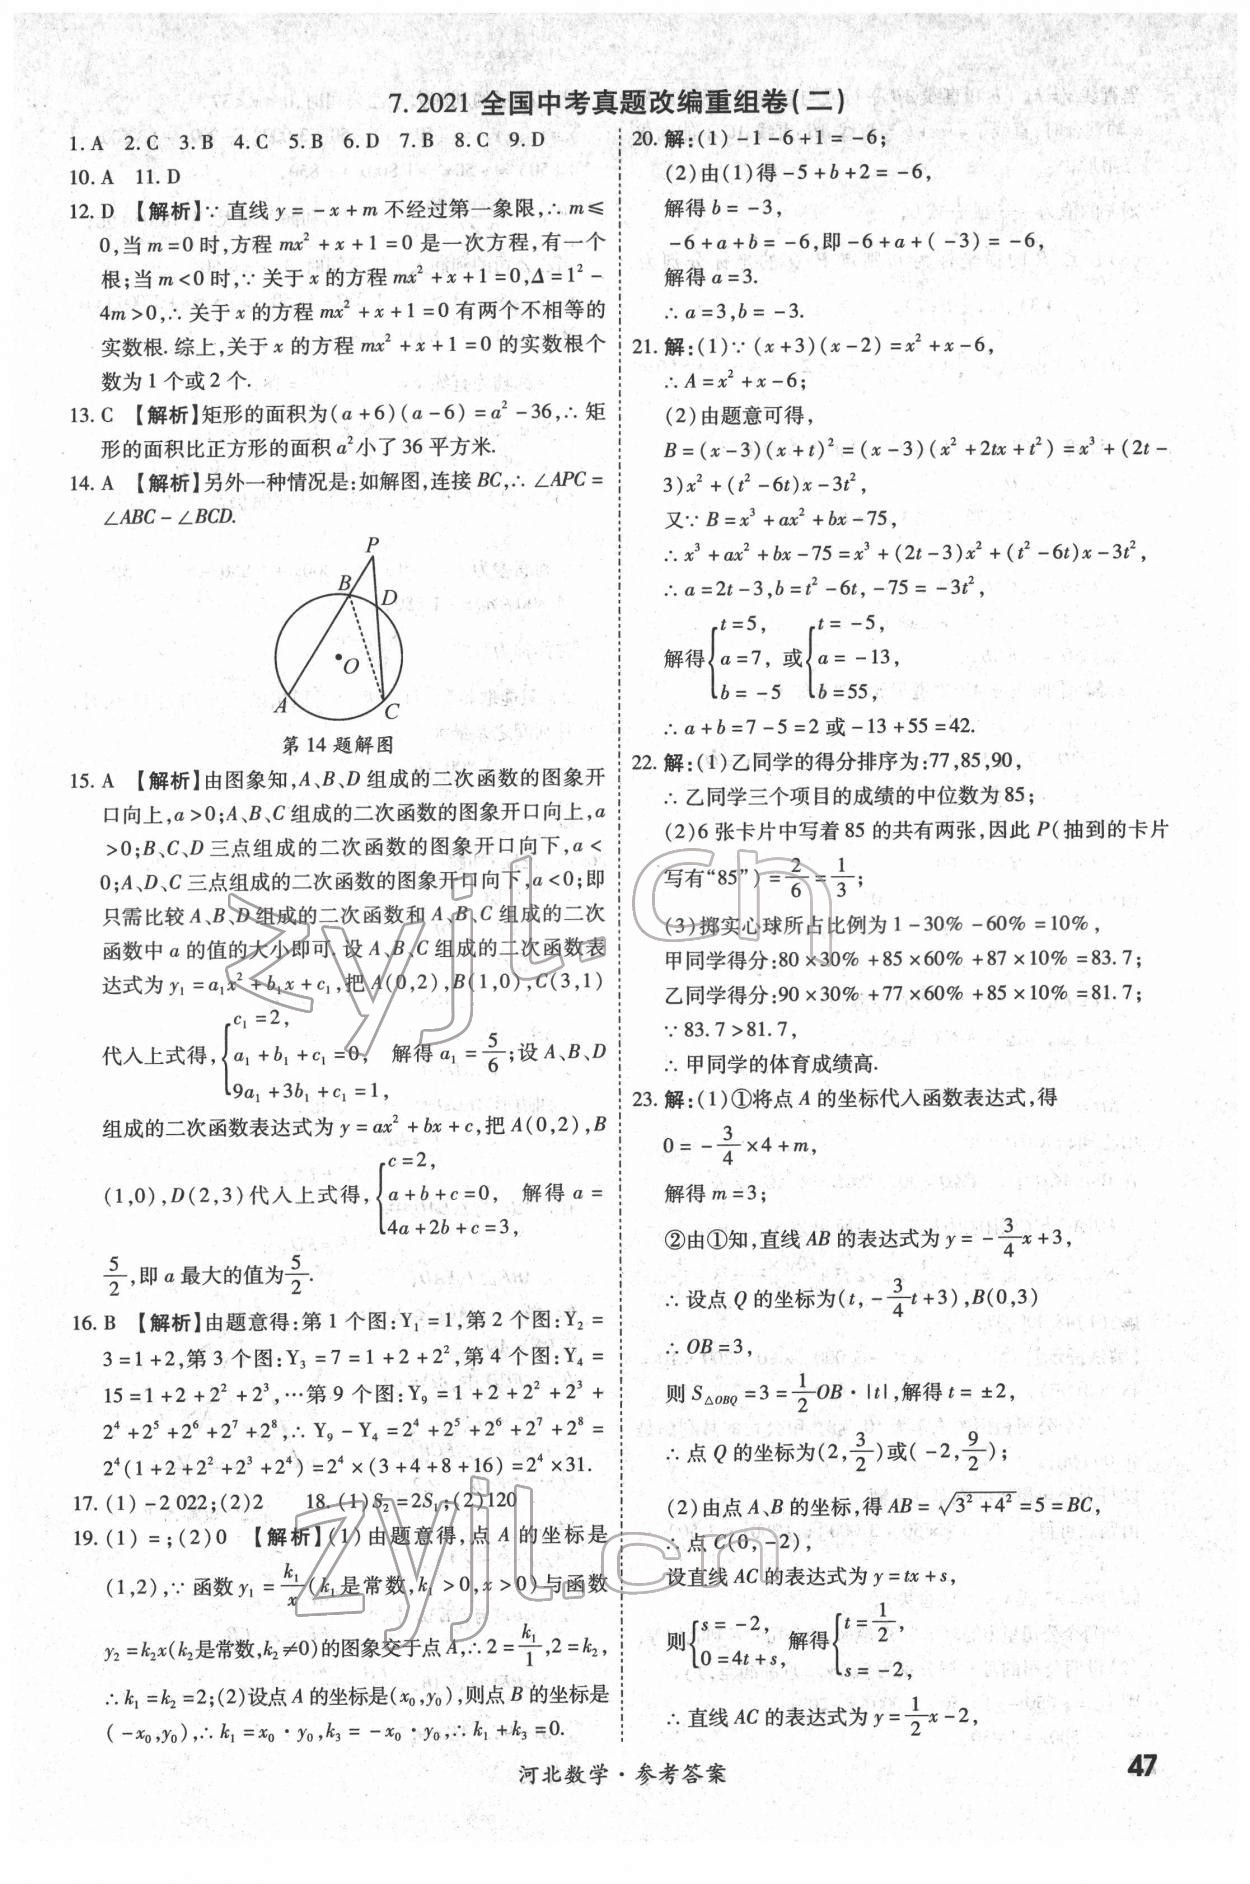 7. 2021 全国中考真题改编重组卷(二)
1. A 2. C 3. B 4. C 5. B 6. D 7. B 8. C 9. D
10. A 11. D
12. D 【解析】∵ 直线 y = -x + m 不经过第一象限,∴ m ≤
0,当 m = 0 时,方程 mx² + x + 1 = 0 是一次方程,有一个
根;当 m < 0 时,∵ 关于 x 的方程 mx² + x + 1 = 0,Δ = 1² -
4m > 0,∴ 关于 x 的方程 mx² + x + 1 = 0 有两个不相等的
实数根. 综上,关于 x 的方程 mx² + x + 1 = 0 的实数根个
数为 1 个或 2 个.
13. C 【解析】矩形的面积为(a + 6)(a - 6) = a² - 36,∴ 矩
形的面积比正方形的面积 a² 小了 36 平方米.
14. A 【解析】另外一种情况是:如解图,连接 BC,∴ ∠APC =
∠ABC - ∠BCD.
P
B
D
O
A
C
第 14 题解图
15. A 【解析】由图象知,A、B、D 组成的二次函数的图象开
口向上,a > 0;A、B、C 组成的二次函数的图象开口向上,a
> 0;B、C、D 三点组成的二次函数的图象开口向下,a <
0;A、D、C 三点组成的二次函数的图象开口向下,a < 0;即
只需比较 A、B、D 组成的二次函数和 A、B、C 组成的二次
函数中 a 的值的大小即可. 设 A、B、C 组成的二次函数表
达式为 y₁ = a₁x² + b₁x + c₁,把 A(0,2),B(1,0),C(3,1)
代入上式得,{c₁ = 2, a₁ + b₁ + c₁ = 0, 9a₁ + 3b₁ + c₁ = 1, 解得 a₁ = 5/6;设 A、B、D
组成的二次函数表达式为 y = ax² + bx + c,把 A(0,2),B
(1,0),D(2,3)代入上式得,{c = 2, a + b + c = 0, 4a + 2b + c = 3, 解得 a =
5/2,即 a 最大的值为 5/2.
16. B 【解析】由题意得:第 1 个图:Y₁ = 1,第 2 个图:Y₂ =
3 = 1 + 2,第 3 个图:Y₃ = 7 = 1 + 2 + 2²,第 4 个图:Y₄ =
15 = 1 + 2 + 2² + 2³,…第 9 个图:Y₉ = 1 + 2 + 2² + 2³ +
2⁴ + 2⁵ + 2⁶ + 2⁷ + 2⁸,∴ Y₉ - Y₄ = 2⁴ + 2⁵ + 2⁶ + 2⁷ + 2⁸ =
2⁴(1 + 2 + 2² + 2³ + 2⁴) = 2⁴ × (3 + 4 + 8 + 16) = 2⁴ × 31.
17. (1) -2 022;(2)2 18. (1)S₂ = 2S₁;(2)120
19. (1) = ;(2)0 【解析】(1)由题意得,点 A 的坐标是
(1,2),∵ 函数 y₁ = k₁/x(k₁ 是常数,k₁ > 0,x > 0)与函数
y₂ = k₂x(k₂ 是常数,k₂ ≠ 0)的图象交于点 A,∴ 2 = k₁/1,2 = k₂,
∴ k₁ = k₂ = 2;(2)设点 A 的坐标是(x₀,y₀),则点 B 的坐标是
(-x₀,y₀),∴ k₁ = x₀ · y₀,k₃ = -x₀ · y₀,∴ k₁ + k₃ = 0.
20. 解:(1) -1 - 6 + 1 = -6;
(2)由(1)得 -5 + b + 2 = -6,
解得 b = -3,
-6 + a + b = -6,即 -6 + a + (-3) = -6,
解得 a = 3.
∴ a = 3,b = -3.
21. 解:(1)∵ (x + 3)(x - 2) = x² + x - 6,
∴ A = x² + x - 6;
(2)由题意可得,
B = (x - 3)(x + t)² = (x - 3)(x² + 2tx + t²) = x³ + (2t -
3)x² + (t² - 6t)x - 3t²,
又∵ B = x³ + ax² + bx - 75,
∴ x³ + ax² + bx - 75 = x³ + (2t - 3)x² + (t² - 6t)x - 3t²,
∴ a = 2t - 3,b = t² - 6t, -75 = -3t²,
解得{t = 5, a = 7, b = -5 或{t = -5, a = -13, b = 55,
∴ a + b = 7 - 5 = 2 或 -13 + 55 = 42.
22. 解:(1)乙同学的得分排序为:77,85,90,
∴ 乙同学三个项目的成绩的中位数为 85;
(2)6 张卡片中写着 85 的共有两张,因此 P(抽到的卡片
写有“85”) = 2/6 = 1/3;
(3)掷实心球所占比例为 1 - 30% - 60% = 10%,
甲同学得分:80 × 30% + 85 × 60% + 87 × 10% = 83.7;
乙同学得分:90 × 30% + 77 × 60% + 85 × 10% = 81.7;
∵ 83.7 > 81.7,
∴ 甲同学的体育成绩高.
23. 解:(1)①将点 A 的坐标代入函数表达式,得
0 = -3/4 × 4 + m,
解得 m = 3;
②由①知,直线 AB 的表达式为 y = -3/4x + 3,
∴ 设点 Q 的坐标为(t, -3/4t + 3),B(0,3)
∴ OB = 3,
则 S△OBQ = 3 = 1/2 OB · |t|,解得 t = ±2,
∴ 点 Q 的坐标为(2, 3/2)或(-2, 9/2);
(2)由点 A、B 的坐标,得 AB = √(3² + 4²) = 5 = BC,
∴ 点 C(0, -2),
设直线 AC 的表达式为 y = tx + s,
则{s = -2, 0 = 4t + s, 解得{t = 1/2, s = -2,
∴ 直线 AC 的表达式为 y = 1/2x - 2,
河北数学 · 参考答案
47
zyjl.cn
zyjl.cn